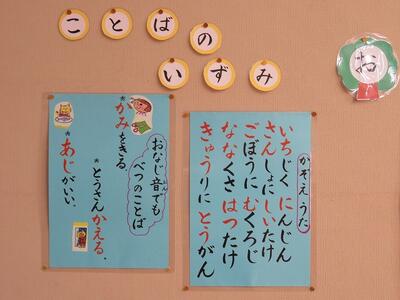 ことばの
いずみ
お
おなじ音でも
べつのことば
*かみをきる。
*とうさんかえる。
*あじがいい。
かぞえうた
いちじく にんじん
さんしょに しいたけ
ごぼうに むくろじ
ななくさ はつたけ
きゅうりに とうがん